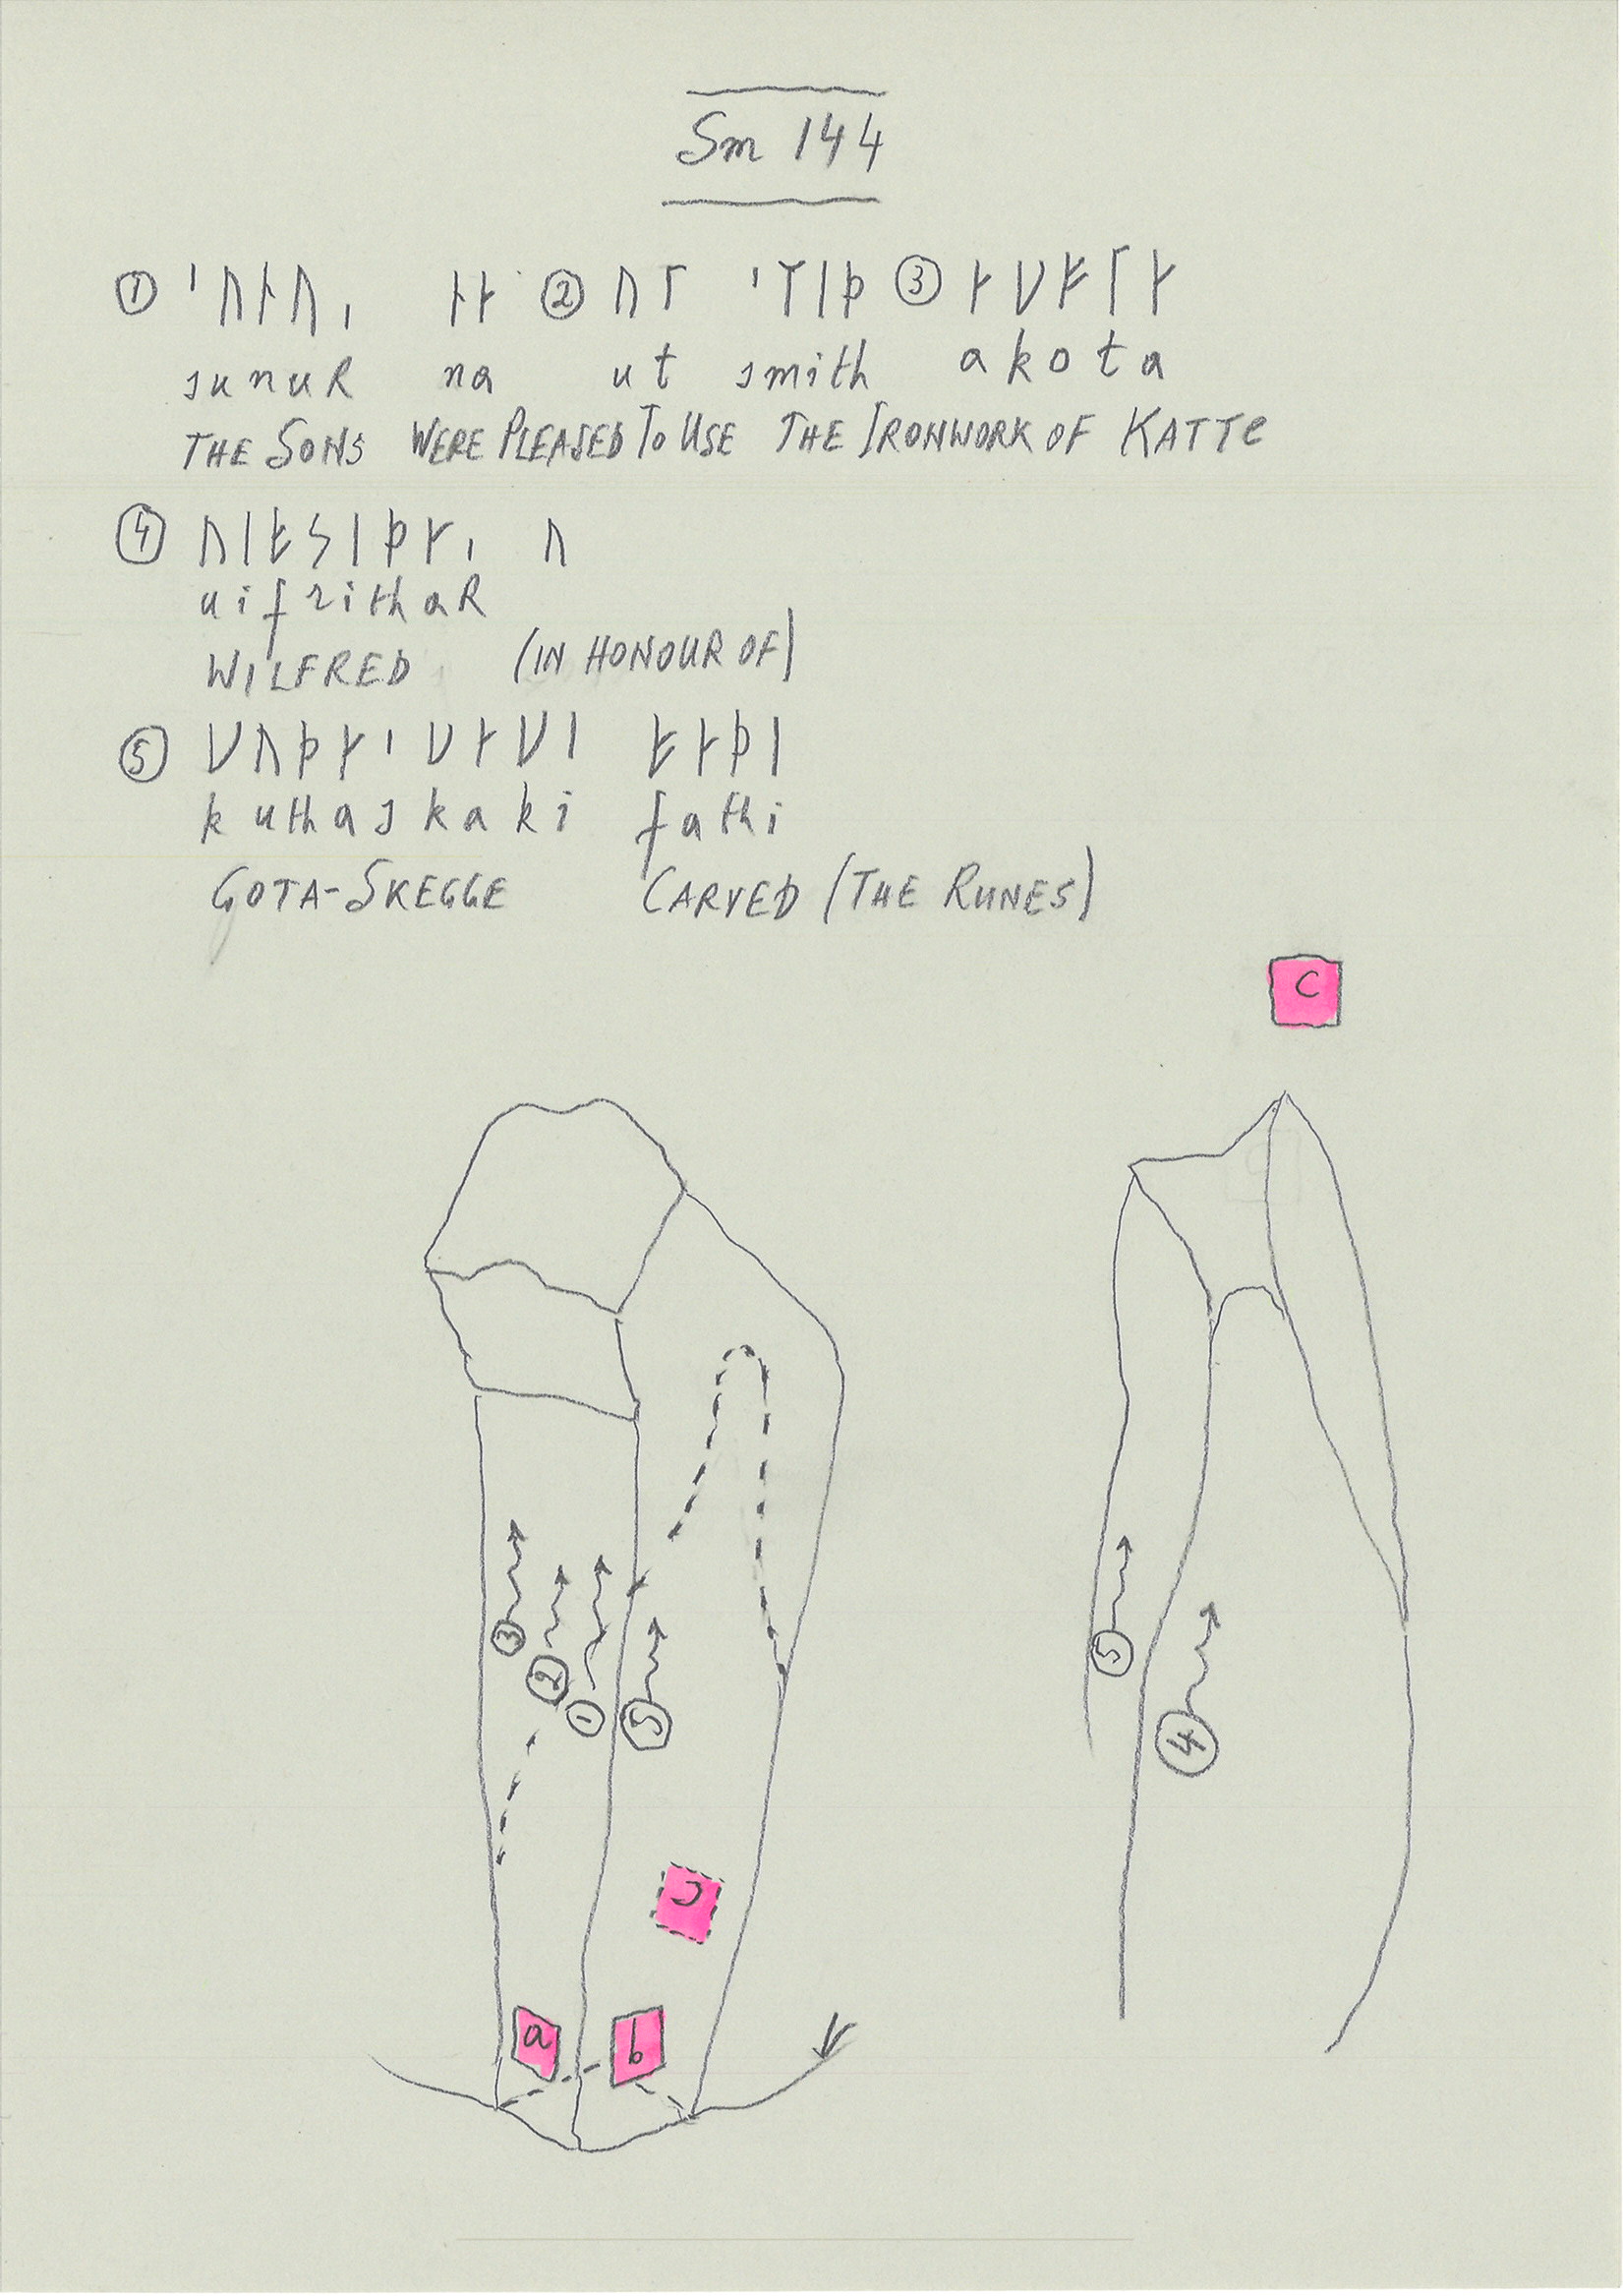 Sm 144
① ᛌᚢᚾᚢᛧ ᚾᛅ ② ᚢᛏ ᛌᛘᛁᚦ ③ ᛅᚴᚬᛏᛅ
sunuR na ut smith akota
THE SONS WERE PLEASED TO USE THE IRONWORK OF KATTE
④ ᚢᛁᚠᚱᛁᚦᛅᛧ ᚢ
uifrithaR
WILFRED (IN HONOUR OF)
⑤ ᚴᚢᚦᛅᛌᚴᛅᚴᛁ ᚠᛅᚦᛁ
kuthaskaki fathi
GOTA-SKEGGE CARVED (THE RUNES)
C
③ ② ① ⑤
⑤
④
C
a b